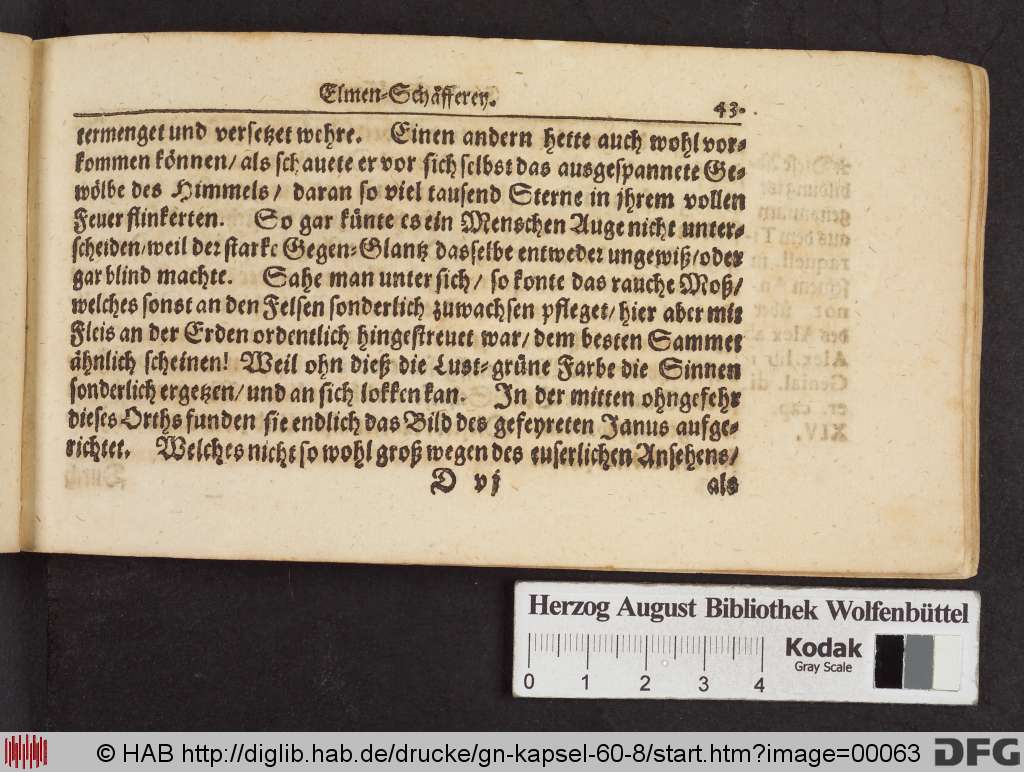 Elmen-Schäfferey. 43.
termenget und versetzet wehre. Einen andern hette auch wohl vor-
kommen können/ als schauete er vor sich selbst das ausgespannete Ge-
wölbe des Himmels/ daran so viel tausend Sterne in jhrem vollen
Feuer flinkerten. So gar künte es ein Menschen Auge nicht unter-
scheiden/ weil der starke Gegen-Glantz dasselbe entweder ungewiß/ oder
gar blind machte. Sahe man unter sich/ so konte das rauche Moß/
welches sonst an den Felsen sonderlich zuwachsen pfleget/ hier aber mit
Fleis an der Erden ordentlich hingestreuet war/ dem besten Sammet
ähnlich scheinen! Weil ohn dieß die Lust-grüne Farbe die Sinnen
sonderlich ergetzen/ und an sich lokken kan. In der mitten ohngefehr
dieses Orths funden sie endlich das Bild des gefeyreten Janus aufge-
richtet. Welches nicht so wohl groß wegen des euserlichen Ansehens/
D vj als
Herzog August Bibliothek Wolfenbüttel
Kodak
Gray Scale
0 1 2 3 4
© HAB http://diglib.hab.de/drucke/gn-kapsel-60-8/start.htm?image=00063
DFG